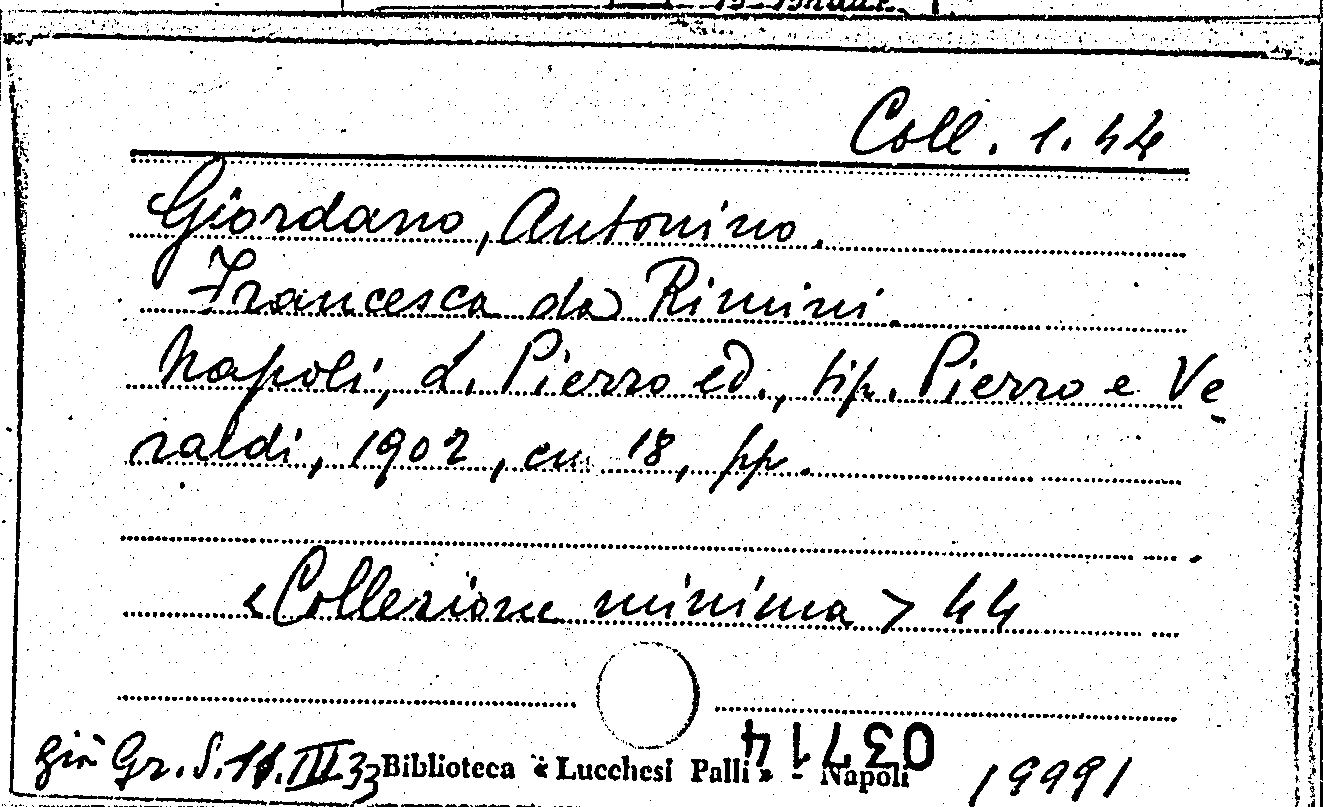 Coll. 1.44
Giordano, Antonino.
Francesca da Rimini.
Napoli, L. Pierro ed., tip. Pierro e Ve-
raldi, 1902, cm 18, pp.
<Collezione minima> 44
già Gr. S. 11. III 33
Biblioteca « Lucchesi Palli » - Napoli
03714
19991